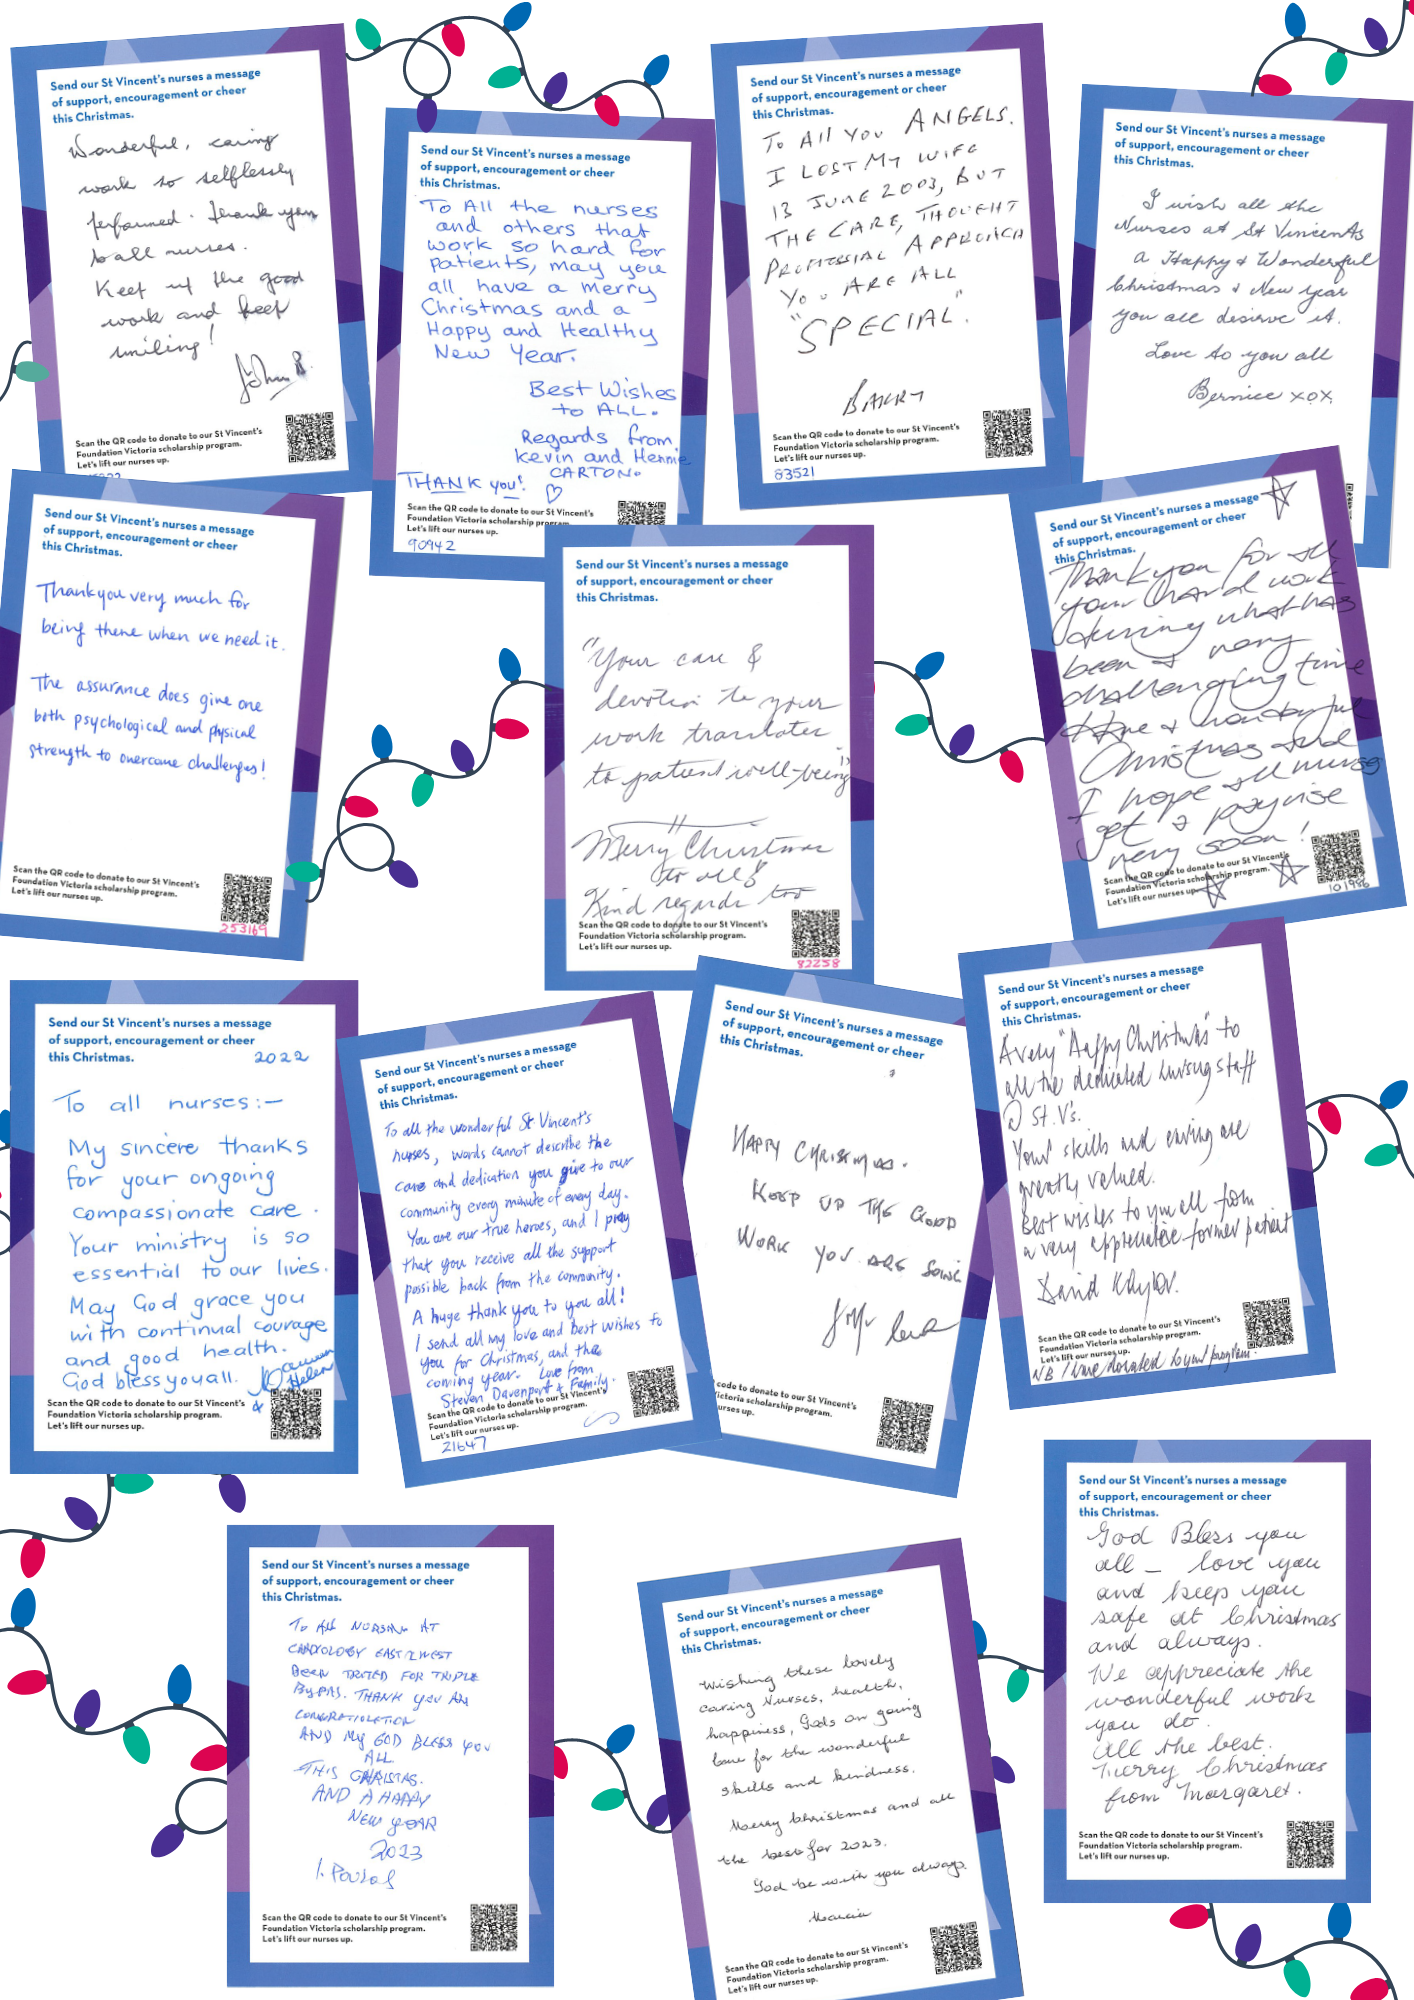 Send our St Vincent's nurses a message
of support, encouragement or cheer
this Christmas.
Wonderful, caring
work so selflessly
performed. Thank you
to all nurses.
Keep up the good
work and keep
smiling!
John B.
Scan the QR code to donate to our St Vincent's
Foundation Victoria scholarship program.
Let's lift our nurses up.
Send our St Vincent's nurses a message
of support, encouragement or cheer
this Christmas.
To All the nurses
and others that
work so hard for
patients, may you
all have a merry
Christmas and a
Happy and Healthy
New Year.
Best Wishes
to ALL.
Regards from
Kevin and Hennie
CARTON.
THANK you! ♡
Scan the QR code to donate to our St Vincent's
Foundation Victoria scholarship program.
Let's lift our nurses up.
90942
Send our St Vincent's nurses a message
of support, encouragement or cheer
this Christmas.
To All You ANGELS.
I LOST MY WIFE
13 JUNE 2003, BUT
THE CARE, THOUGHT
PROFESSIAL APPROACH
YOU ARE ALL
"SPECIAL".
BARRY
Scan the QR code to donate to our St Vincent's
Foundation Victoria scholarship program.
Let's lift our nurses up.
83521
Send our St Vincent's nurses a message
of support, encouragement or cheer
this Christmas.
I wish all the
Nurses at St Vincents
a Happy & Wonderful
Christmas & New Year
you all deserve it.
Love to you all
Bernice xox
Send our St Vincent's nurses a message
of support, encouragement or cheer
this Christmas.
Thankyou very much for
being there when we need it.
The assurance does give one
both psychological and physical
strength to overcome challenges!
Scan the QR code to donate to our St Vincent's
Foundation Victoria scholarship program.
Let's lift our nurses up.
253169
Send our St Vincent's nurses a message
of support, encouragement or cheer
this Christmas.
"Your care &
devotion to your
work translates
to patient well-being"
Merry Christmas
to all &
Kind regards too
Scan the QR code to donate to our St Vincent's
Foundation Victoria scholarship program.
Let's lift our nurses up.
82258
Send our St Vincent's nurses a message
of support, encouragement or cheer
this Christmas.
Thank you for all
your hard work
during what has
been a very
challenging time
Have a wonderful
Christmas and
I hope all nurses
get a payrise
very soon!
Scan the QR code to donate to our St Vincent's
Foundation Victoria scholarship program.
Let's lift our nurses up.
101986
Send our St Vincent's nurses a message
of support, encouragement or cheer
this Christmas.
2022
To all nurses:-
My sincere thanks
for your ongoing
compassionate care.
Your ministry is so
essential to our lives.
May God grace you
with continual courage
and good health.
God bless you all.
& Helen
Scan the QR code to donate to our St Vincent's
Foundation Victoria scholarship program.
Let's lift our nurses up.
Send our St Vincent's nurses a message
of support, encouragement or cheer
this Christmas.
To all the wonderful St Vincent's
nurses, words cannot describe the
care and dedication you give to our
community every minute of every day.
You are our true heroes, and I pray
that you receive all the support
possible back from the community.
A huge thank you to you all!
I send all my love and best wishes to
you for Christmas, and the
coming year. Love from
Steven Davenport & Family.
Scan the QR code to donate to our St Vincent's
Foundation Victoria scholarship program.
Let's lift our nurses up.
21647
Send our St Vincent's nurses a message
of support, encouragement or cheer
this Christmas.
HAPPY CHRISTMAS.
KEEP UP THE GOOD
WORK YOU ARE DOING
code to donate to our St Vincent's
Victoria scholarship program.
nurses up.
Send our St Vincent's nurses a message
of support, encouragement or cheer
this Christmas.
A very "Happy Christmas" to
all the dedicated nursing staff
@ St. V's.
Your skills and caring are
greatly valued.
Best wishes to you all from
a very appreciative former patient
David
Scan the QR code to donate to our St Vincent's
Foundation Victoria scholarship program.
Let's lift our nurses up.
NB I have donated to your program.
Send our St Vincent's nurses a message
of support, encouragement or cheer
this Christmas.
To All NURSING AT
CARDIOLOGY EAST & WEST
BEEN TRATED FOR TRIPLE
BYPAS. THANK YOU AN
CONGRATIOLATION
AND MY GOD BLESS YOU
ALL
THIS CHRISTAS.
AND A HAPPY
NEW YEAR
2023
I. POULOS
Scan the QR code to donate to our St Vincent's
Foundation Victoria scholarship program.
Let's lift our nurses up.
Send our St Vincent's nurses a message
of support, encouragement or cheer
this Christmas.
Wishing these lovely
caring Nurses, health,
happiness, Gods on going
love for the wonderful
skills and kindness.
Merry Christmas and all
the best for 2023.
God be with you always.
Marcia
Scan the QR code to donate to our St Vincent's
Foundation Victoria scholarship program.
Let's lift our nurses up.
Send our St Vincent's nurses a message
of support, encouragement or cheer
this Christmas.
God Bless you
all – love you
and keep you
safe at Christmas
and always.
We appreciate the
wonderful work
you do.
All the best.
Merry Christmas
from Margaret.
Scan the QR code to donate to our St Vincent's
Foundation Victoria scholarship program.
Let's lift our nurses up.